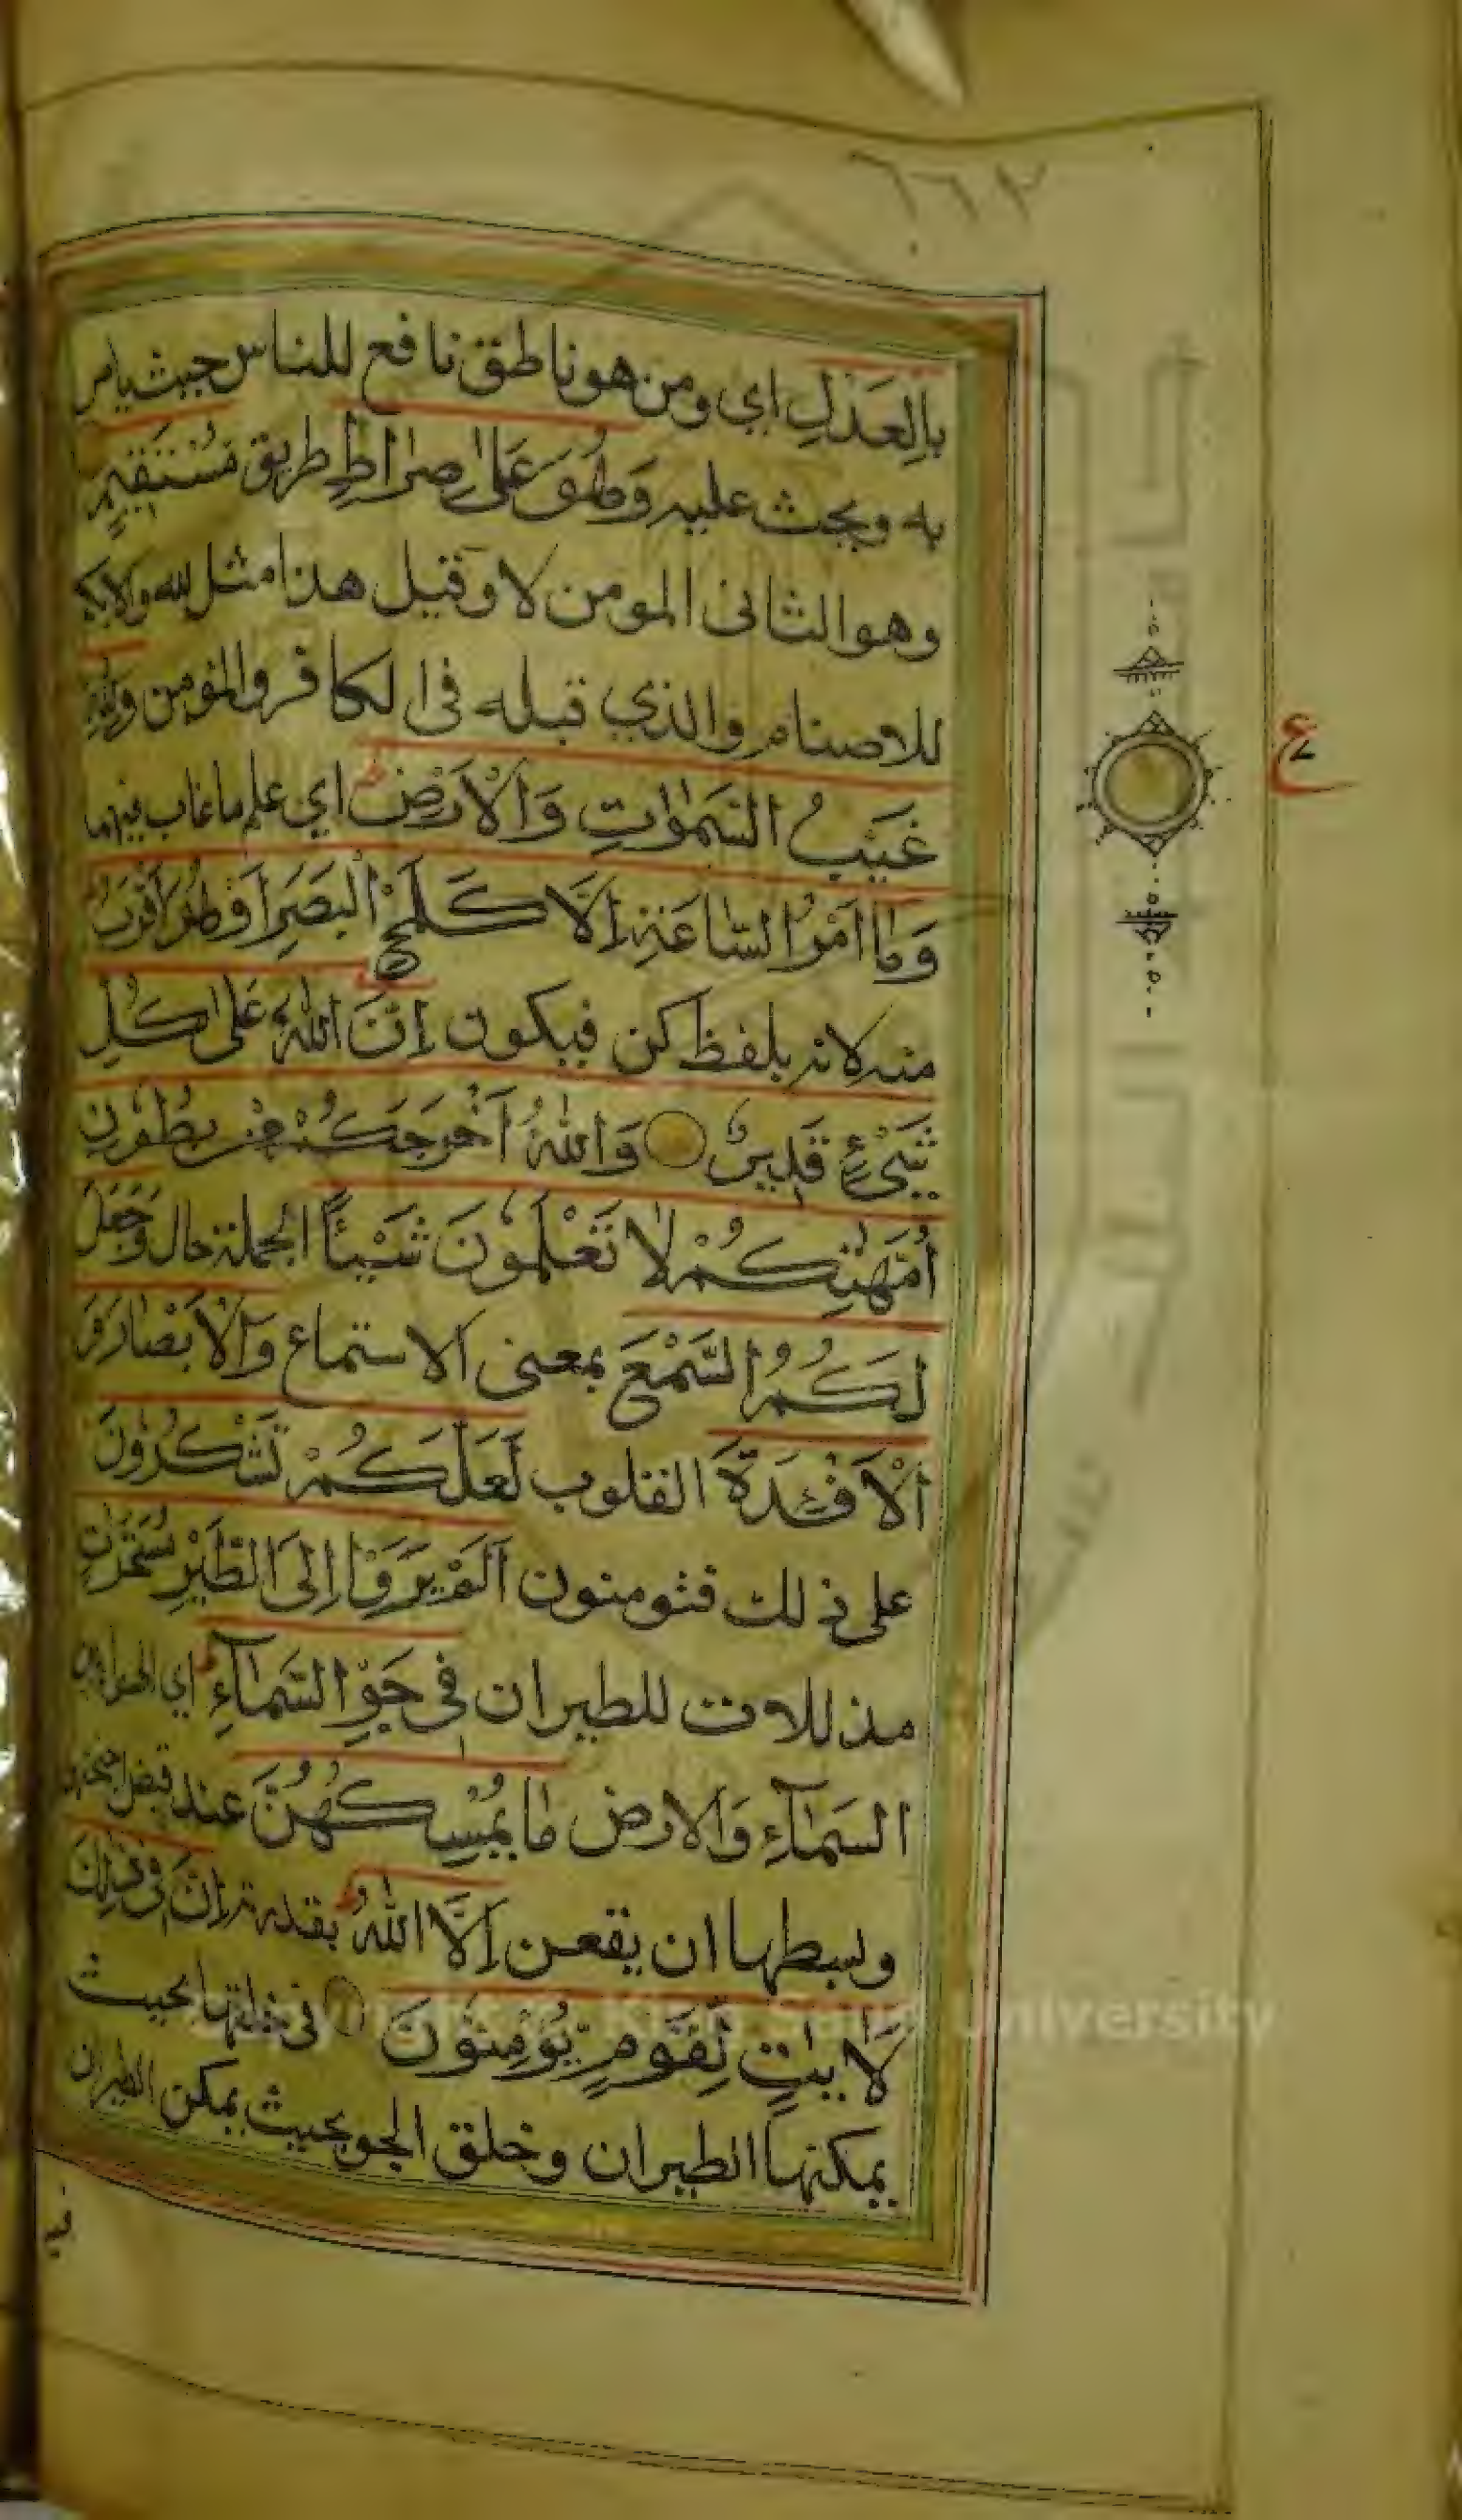 ٦٦٢
بِالعَدْلِ اي ومن هو ناطق نافع للناس حيث يامر
به ويحث عليه وَهُوَ عَلىٰ صِرَاطٍ طريق مُسْتَقِيمٍ
وهو الثانى المومن لا وقيل هذا مثل لله والابكم
للاصنام والذي قبله فى الكافر والمؤمن وَلِلّٰهِ
غَيْبُ السَّمٰوٰتِ وَالْاَرْضِ اي علم ما غاب فيهما
وَمَا اَمْرُ السَّاعَةِ اِلَّا كَلَمْحِ الْبَصَرِ اَوْ هُوَ اَقْرَبُ
منه لانه بلفظ كن فيكون اِنَّ اللّٰهَ عَلىٰ كُلِّ
شَيْءٍ قَدِيرٌ وَاللّٰهُ اَخْرَجَكُمْ مِنْ بُطُونِ
اُمَّهٰتِكُمْ لَا تَعْلَمُونَ شَيْئًا الجملة حال وَجَعَلَ
لَكُمُ السَّمْعَ بمعنى الاستماع وَالْاَبْصَارَ وَ
الْاَفْئِدَةَ القلوب لَعَلَّكُمْ تَشْكُرُونَ
على ذلك فتومنون اَلَمْ يَرَوْا اِلَى الطَّيْرِ مُسَخَّرٰتٍ
مذللات للطيران فِى جَوِّ السَّمَآءِ اي الهواء بين
السَمَآءِ وَالارض مَا يُمْسِكُهُنَّ عند قبض اجنحتهن
وبسطها ان يقعن اِلَّا اللّٰهُ بقدرته اِنَّ فِى ذٰلِكَ
لَاٰيٰتٍ لِّقَوْمٍ يُّؤْمِنُونَ فى خلقها بحيث
يمكنها الطيران وخلق الجو بحيث يمكن الطيران
فيه
ع
King Saud University